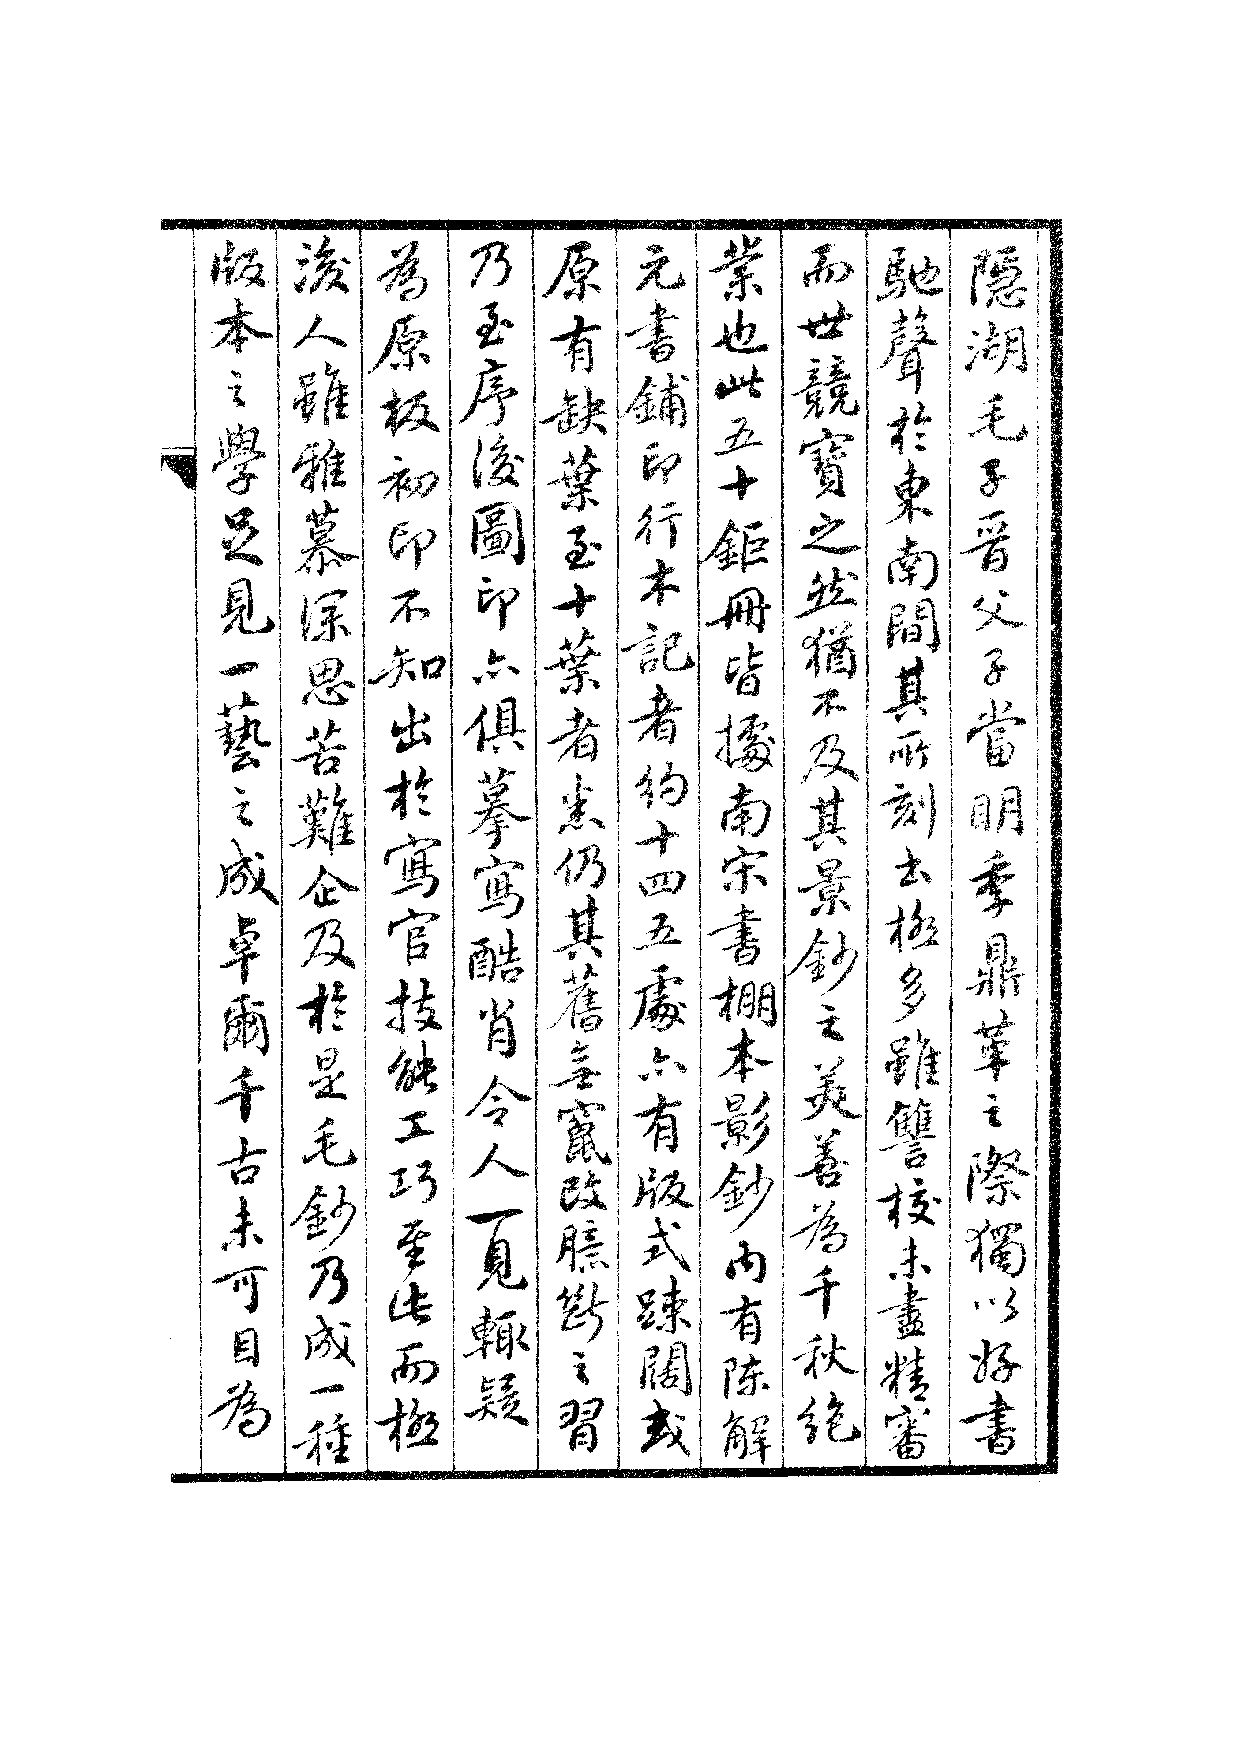 隱湖毛子晉父子當明季鼎革之際獨以好書
馳聲於東南間其所刻書極多雖讐校未盡精審
而世競寶之然猶不及其景鈔之美善為千秋絕
業也此五十鉅冊皆據南宋書棚本影鈔內有陳解
元書鋪印行木記者約十四五處亦有版式踈闊或
原有缺葉至十葉者悉仍其舊無竄改臆斷之習
乃至序後圖印亦俱摹寫酷肖令人一見輒疑
為原板初印不知出於寫官技能工巧至此而極
後人雖雅慕深思苦難企及於是毛鈔乃成一種
版本之學足見一藝之成卓爾千古未可目為